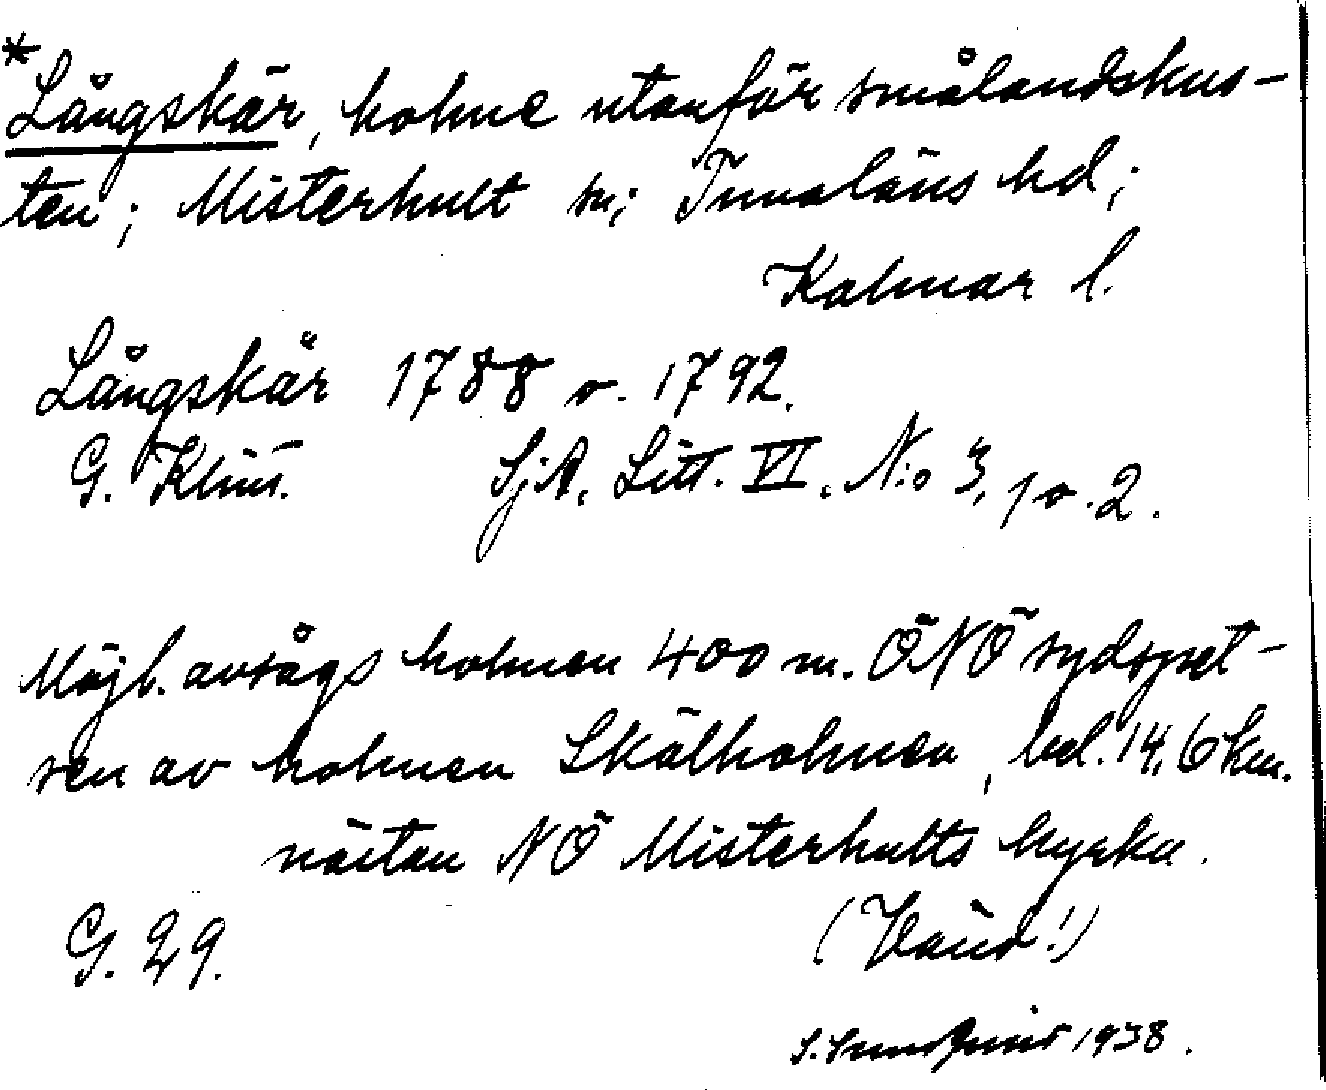 *
Långskär, holme utanför smålandskus-
ten; Misterhult sn; Tunaläns hd;
Kalmar l.
Långskär 1788 o. 1792.
G. Klint. SjA. Litt. VI. N:o 3, 1 o. 2.
Möjl. avsågs holmen 400 m. ÖNÖ sydspet-
sen av holmen Skälholmen, bel. 14,6 km.
nästan NÖ Misterhults kyrka.
G. 29. (Vänd!)
S. Sundquist 1938.